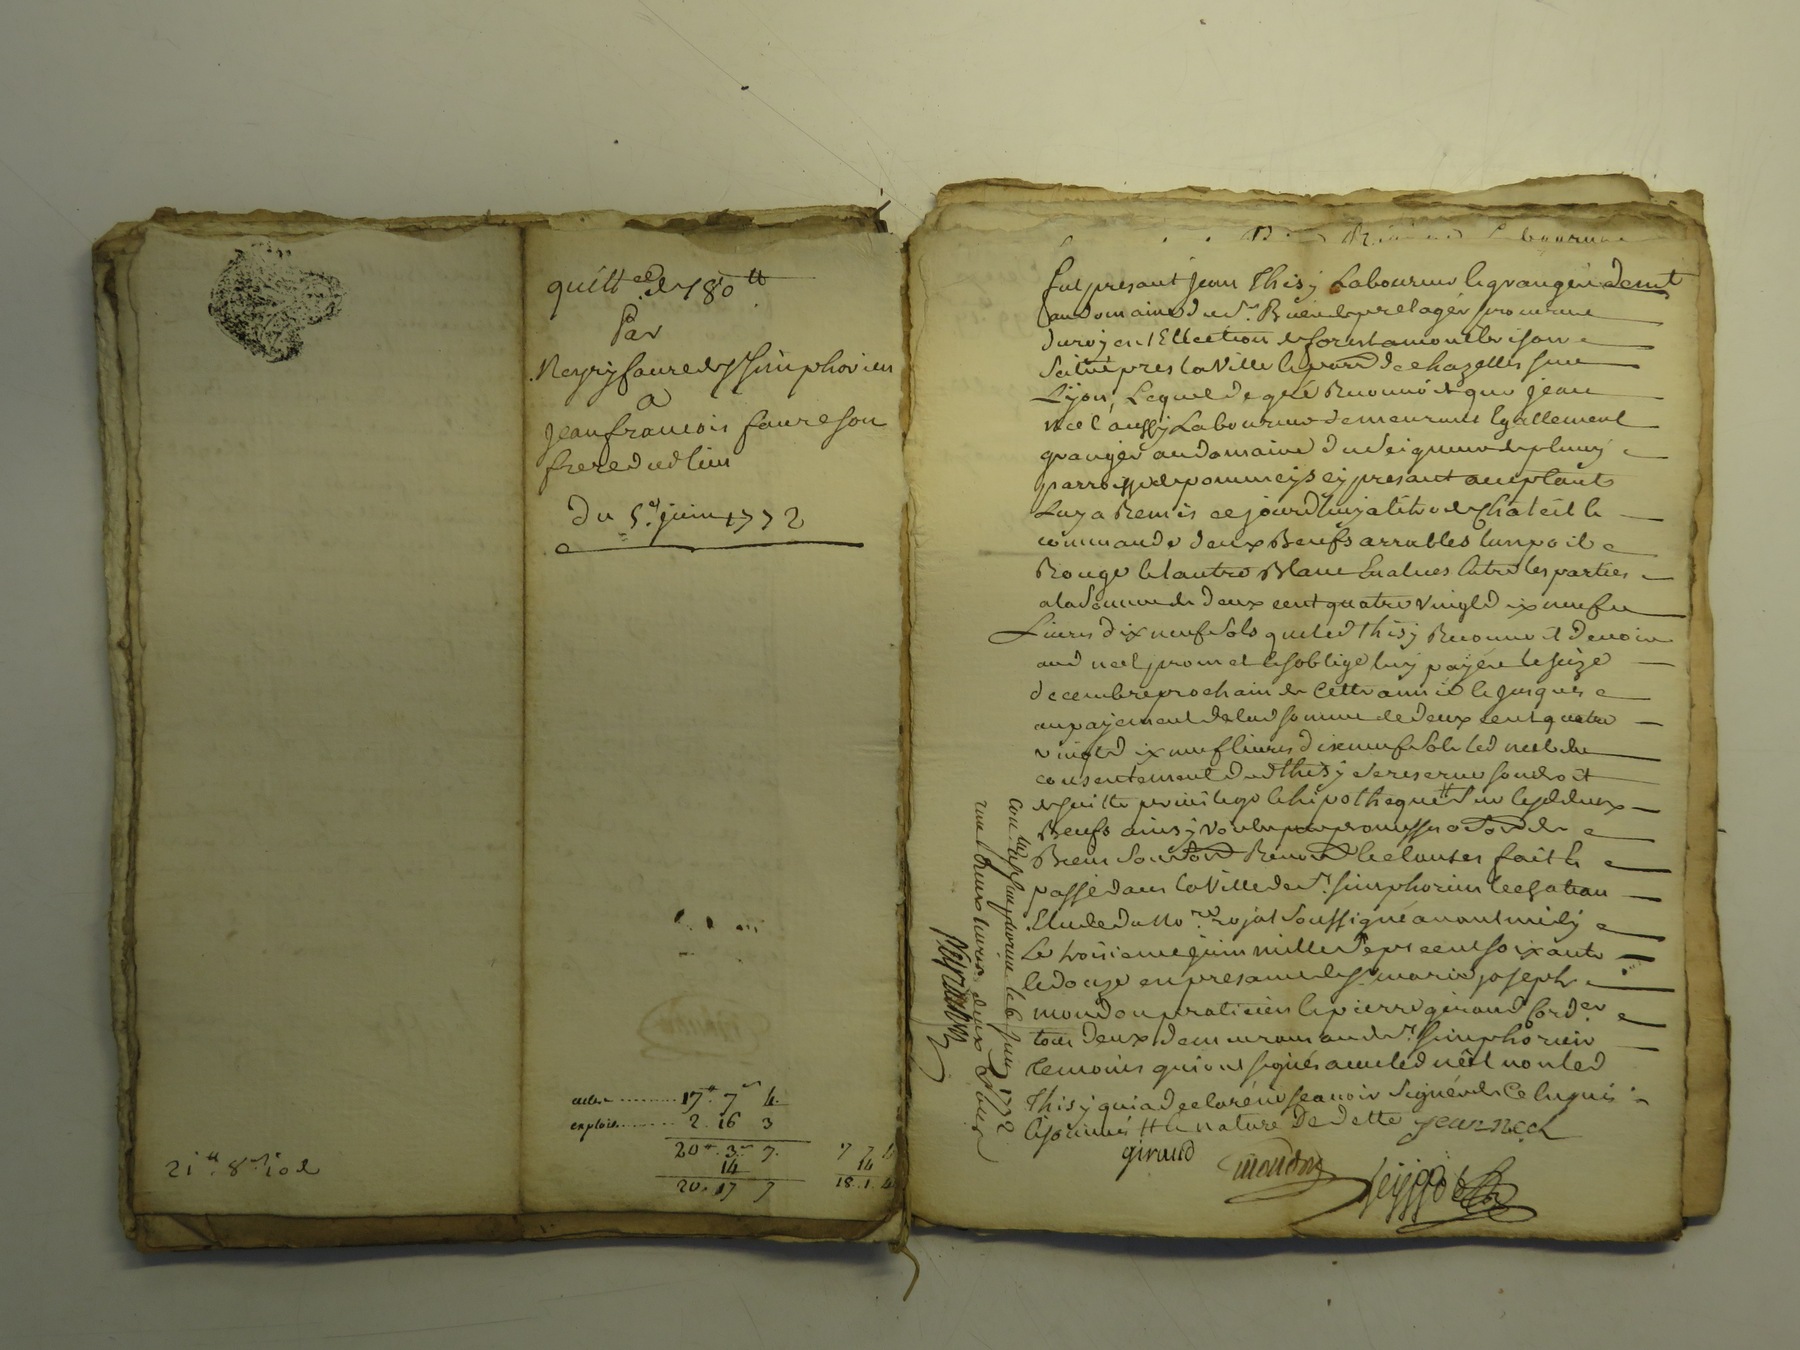 quittce de 180tt
Par
Neyry faure de St Simphorien
a
Jean francois faure son
frere dudlieu
du 5e juin 1772
actes 17 7 4
exploits 2 16 3
20 3 7
14
20 17 7
7 7 4
14
18 1 4
21tt 8s 10d
fut presant Jean Thisy Laboureur et granger demt
au domaine du Sr
du roy en l'Ellection de forest a montbrison
scitué pres la Ville et parr de chazelles sur
Lyon, Lequel de gré Reconnoit que Jean
néel aussy Laboureur demeurant Egallement
granger au domaine du seigneur de pluvy
parroisse de pommeys cy presant acceptant
Luy a Remis ce jourdhuy a titre de Chateil et
commande deux Beufs arrables lun poil
Rouge et lautre Blanc Evalués Entre les parties
a la somme de deux cent quatre vingt dix neuf
Livres dix neuf sols que led thisy Reconnoit devoir
aud neel promet et soblige luy payer le seize
decembre prochain de Cette année et jusques
au payement de lad somme de deux cent quatre
vingt dix neuf livres dix neuf sols led neel du
consentement dud thisy se reserve son droit
de suitte privilege et hipotheque tt sur lesd deux
Beufs ainsy voulu par promesses
Biens soum Renon et clauses fait et
passé dans la Ville de St Simphorien le chateau
Etude du Nore royal soussigné avant midy
Le troisieme juin mille sept cent soixante
et douze en presance de Sr marie joseph
mondon praticien et pierre giraud Corder
tous deux demeurans aud St Simphorien
temoins qui ont signés avec led néel non led
Thisy qui a declaré ne scavoir signer de Ce Enquis
tt et nature de dette jean neel
giraud
mondon
Conlé a St Simphorien le 6 juin 1772